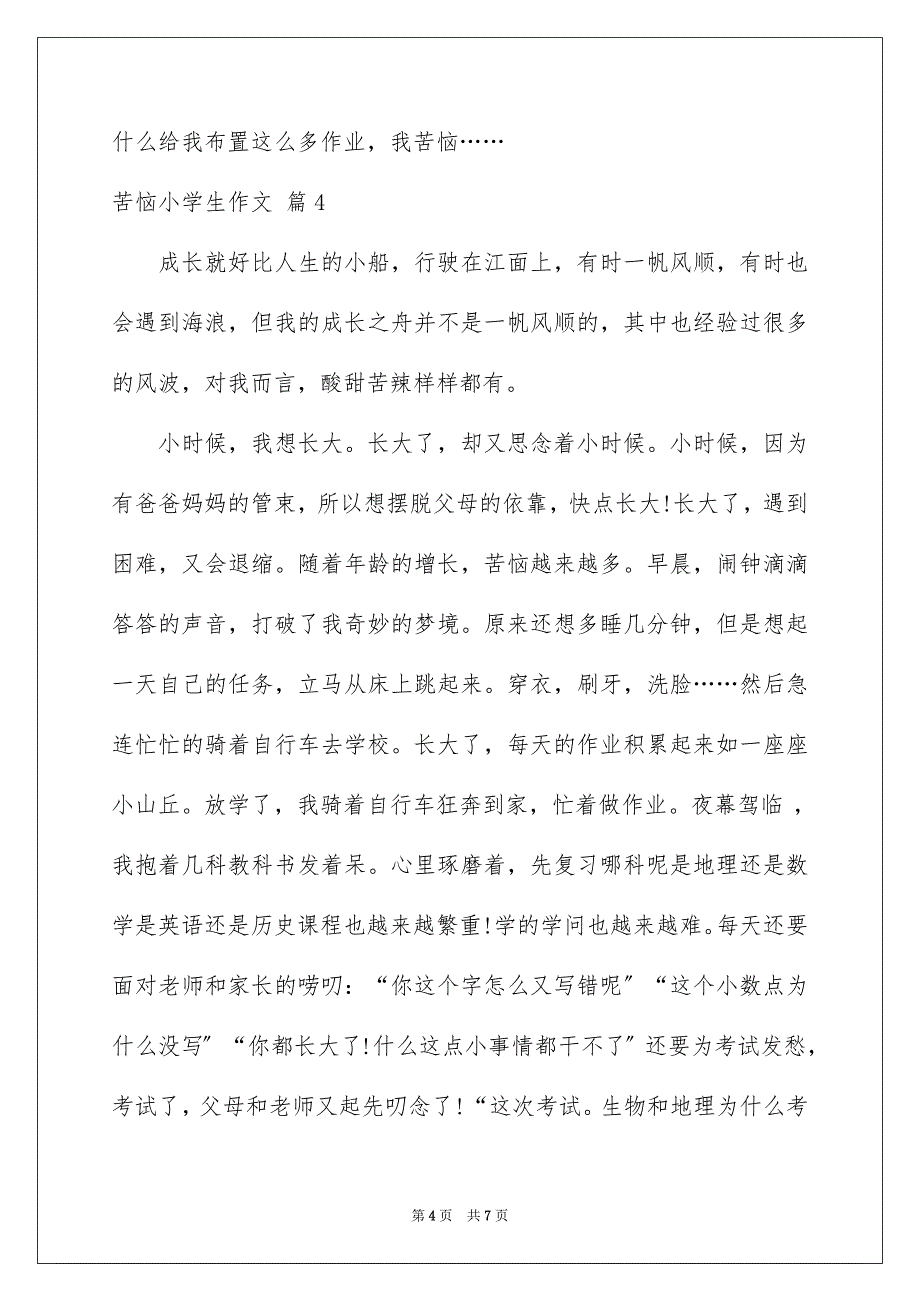 什么给我布置这么多作业，我苦恼……
苦恼小学生作文 篇4
成长就好比人生的小船，行驶在江面上，有时一帆风顺，有时也
会遇到海浪，但我的成长之舟并不是一帆风顺的，其中也经验过很多
的风波，对我而言，酸甜苦辣样样都有。
小时候，我想长大。长大了，却又思念着小时候。小时候，因为
有爸爸妈妈的管束，所以想摆脱父母的依靠，快点长大!长大了，遇到
困难，又会退缩。随着年龄的增长，苦恼越来越多。早晨，闹钟滴滴
答答的声音，打破了我奇妙的梦境。原来还想多睡几分钟，但是想起
一天自己的任务，立马从床上跳起来。穿衣，刷牙，洗脸……然后急
连忙忙的骑着自行车去学校。长大了，每天的作业积累起来如一座座
小山丘。放学了，我骑着自行车狂奔到家，忙着做作业。夜幕驾临 ，
我抱着几科教科书发着呆。心里琢磨着，先复习哪科呢是地理还是数
学是英语还是历史课程也越来越繁重!学的学问也越来越难。每天还要
面对老师和家长的唠叨：“你这个字怎么又写错呢〞“这个小数点为
什么没写〞“你都长大了!什么这点小事情都干不了〞还要为考试发愁，
考试了，父母和老师又起先叨念了!“这次考试。生物和地理为什么考
第 4 页 共 7 页